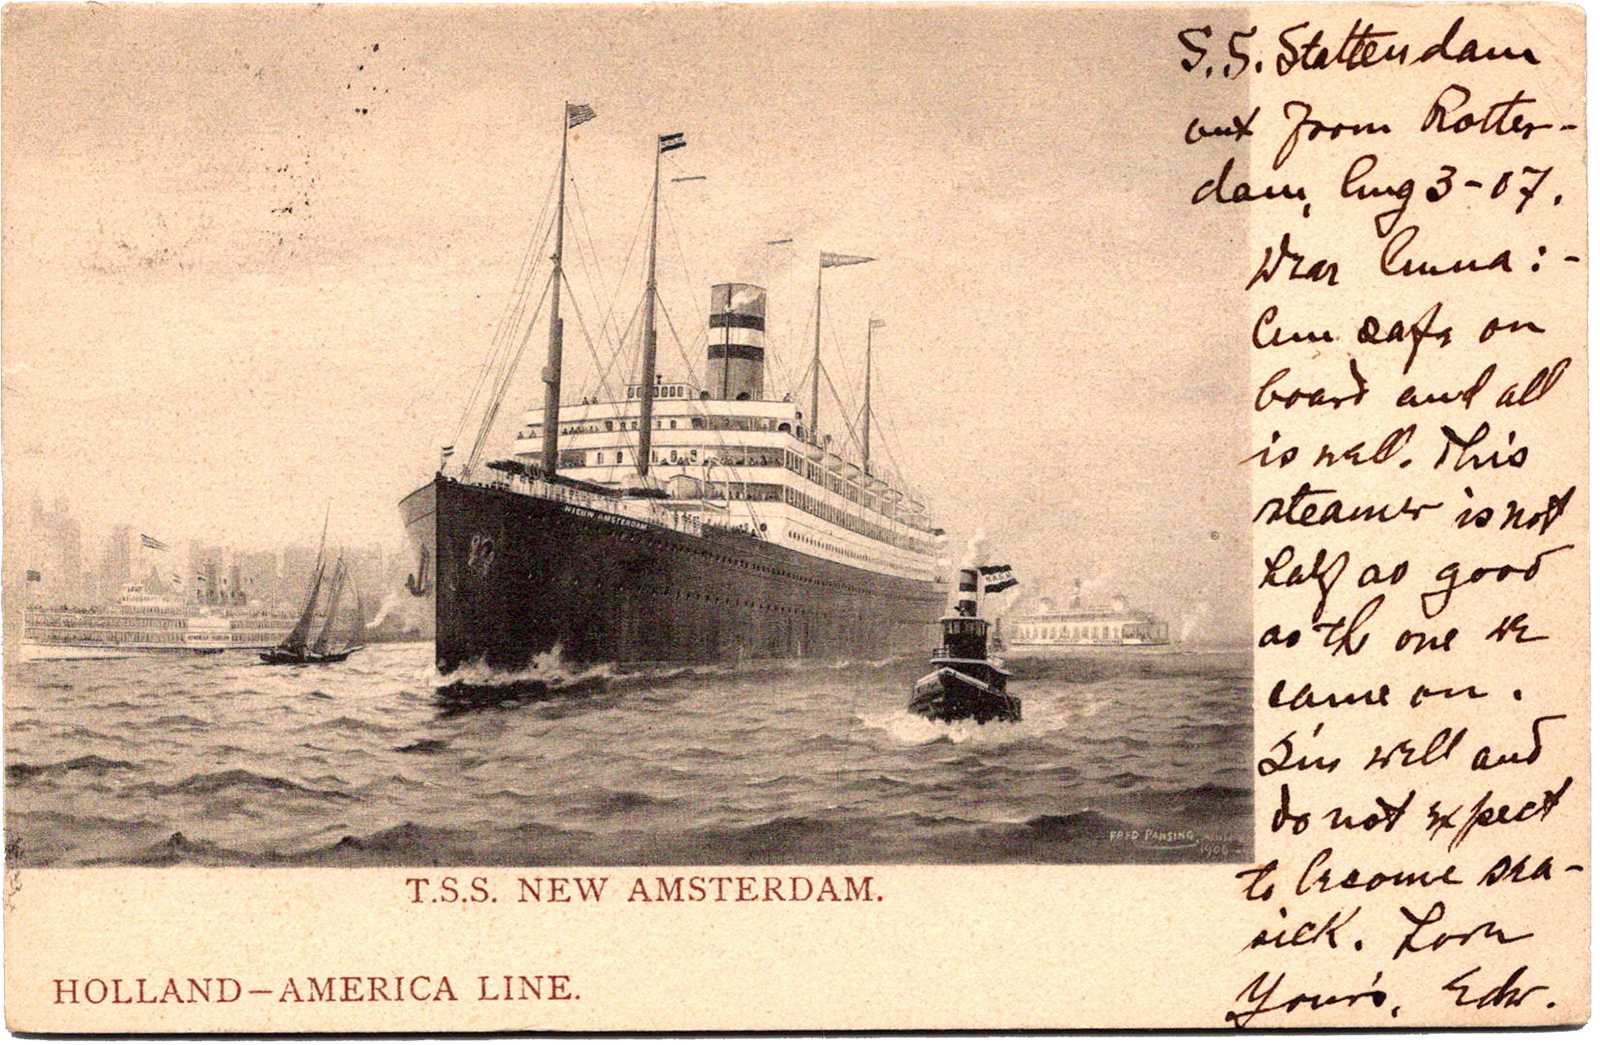 S.S. Stattendam
out from Rotter-
dam, Aug 3-07.
Dear Anna:-
Am safe on
board and all
is well. This
steamer is not
half as good
as th one we
came on.
I'm well and
do not expect
to become sea-
sick. Love
Your's, Edw.
NIEUW AMSTERDAM
N.A.S.M.
FRED PANSING
1906
T.S.S. NEW AMSTERDAM.
HOLLAND–AMERICA LINE.